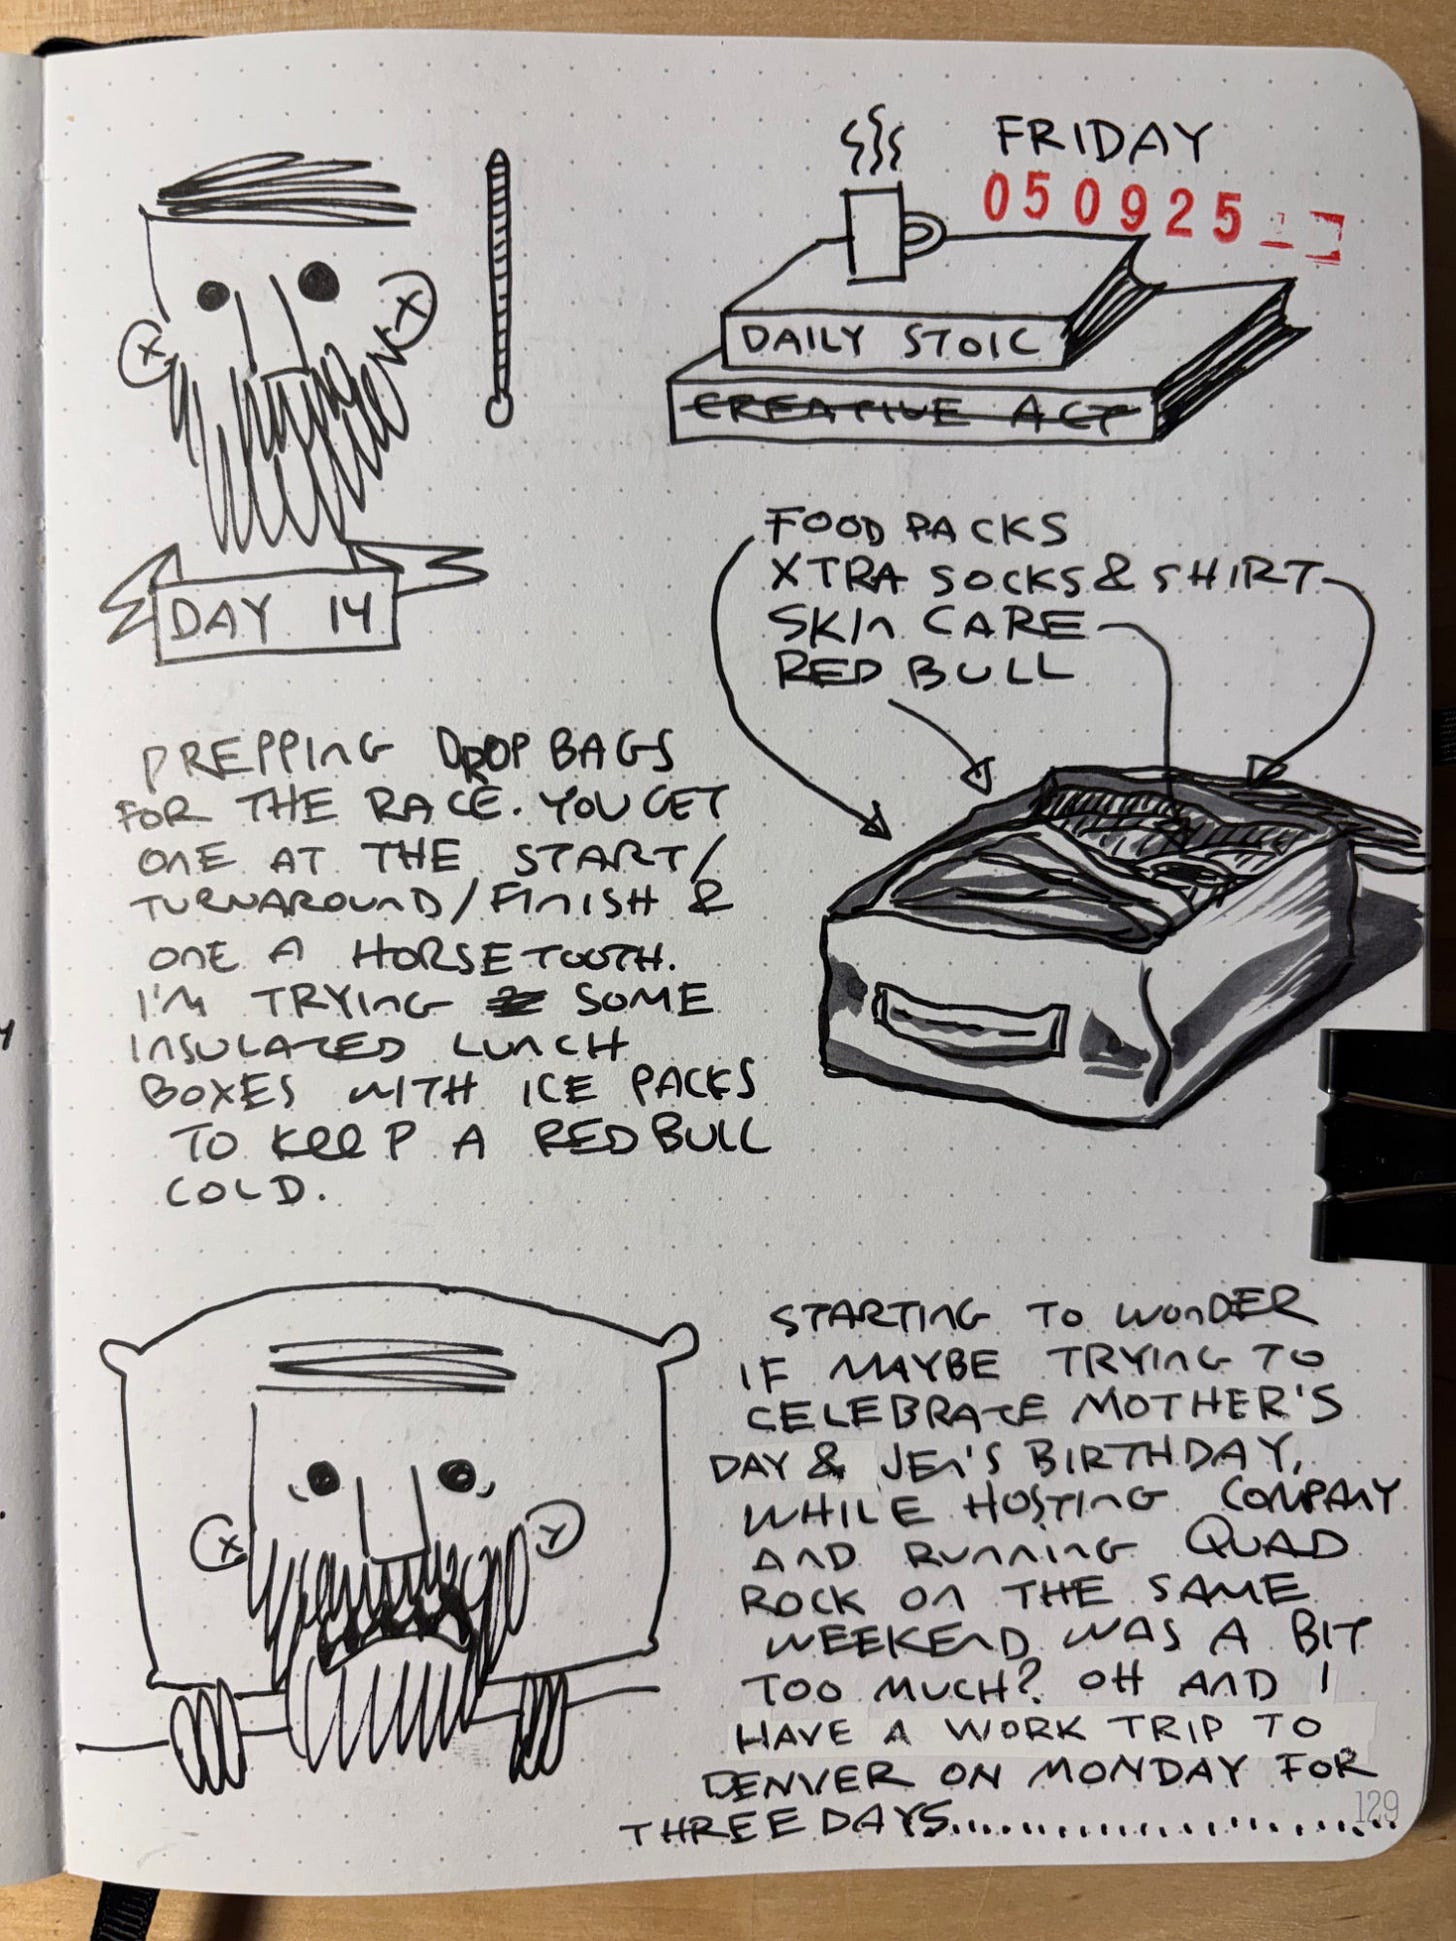 FRIDAY
050925
DAILY STOIC
CREATIVE ACT
DAY 14
FOOD PACKS
XTRA SOCKS & SHIRT
SKIN CARE
RED BULL
PREPPING DROP BAGS
FOR THE RACE. YOU GET
ONE AT THE START/
TURNAROUND/FINISH &
ONE A HORSETOOTH.
I'M TRYING SOME
INSULATED LUNCH
BOXES WITH ICE PACKS
TO KEEP A RED BULL
COLD.
STARTING TO WONDER
IF MAYBE TRYING TO
CELEBRATE MOTHER'S
DAY & JEN'S BIRTHDAY,
WHILE HOSTING COMPANY
AND RUNNING QUAD
ROCK ON THE SAME
WEEKEND WAS A BIT
TOO MUCH? OH AND I
HAVE A WORK TRIP TO
DENVER ON MONDAY FOR
THREE DAYS......................
129